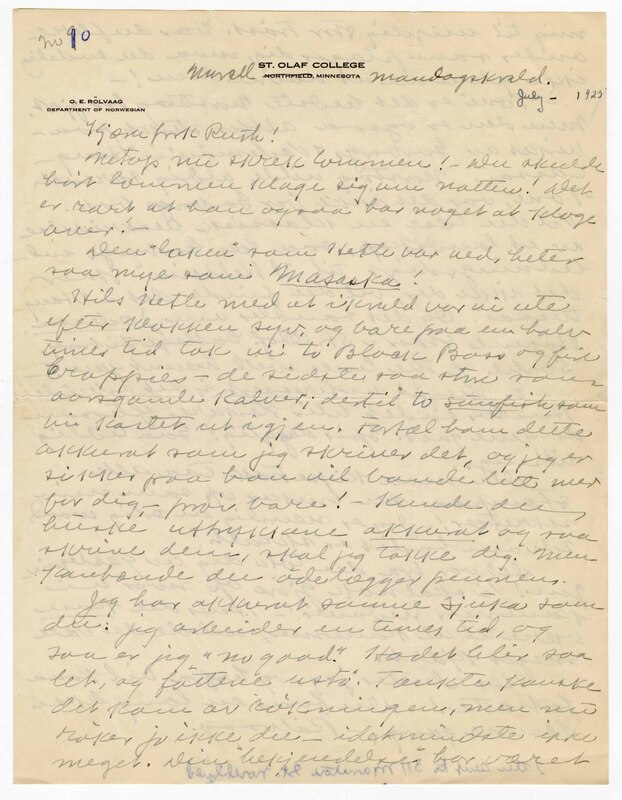 No 90
ST. OLAF COLLEGE
NORTHFIELD, MINNESOTA
Marcell mandagskveld.
July - 1925
O. E. RÖLVAAG
DEPARTMENT OF NORWEGIAN
Kjære frk Ruth!
Netop nu skrek lommen! - Du skulde
hört lommen klage sig om natten! Det
er rart at han ogsaa har noget at klage
over! -
Den "laken" som Hetle var ved, heter
saa mye som Masaska!
Hils Hetle med at ikveld var vi ute
efter klokken syv, og bare paa en halv
times tid tok vi to Black Bass og fire
Crappies - de sidste saa store som
aarsgamle kalver; dertil to sunfish, som
vi kastet ut igjen. Fortæl ham dette
akkurat som jeg skriver det, og jeg er
sikker paa han vil bande litt mer
for dig, - prøv bare! - Kunde du
huske uttrykkene akkurat og saa
skrive dem, skal jeg takke dig. Men
kanhænde du ödelægger pennen.
Jeg har akkurat samme sjuka som
du: jeg arbeider en times tid, og
saa er jeg "no good." Hodet blir saa
let, og föttene ustö. Tænkte kanske
det kom av rökningen, men nu
röker jo ikke du - idetmindste ikke
meget. Din har været